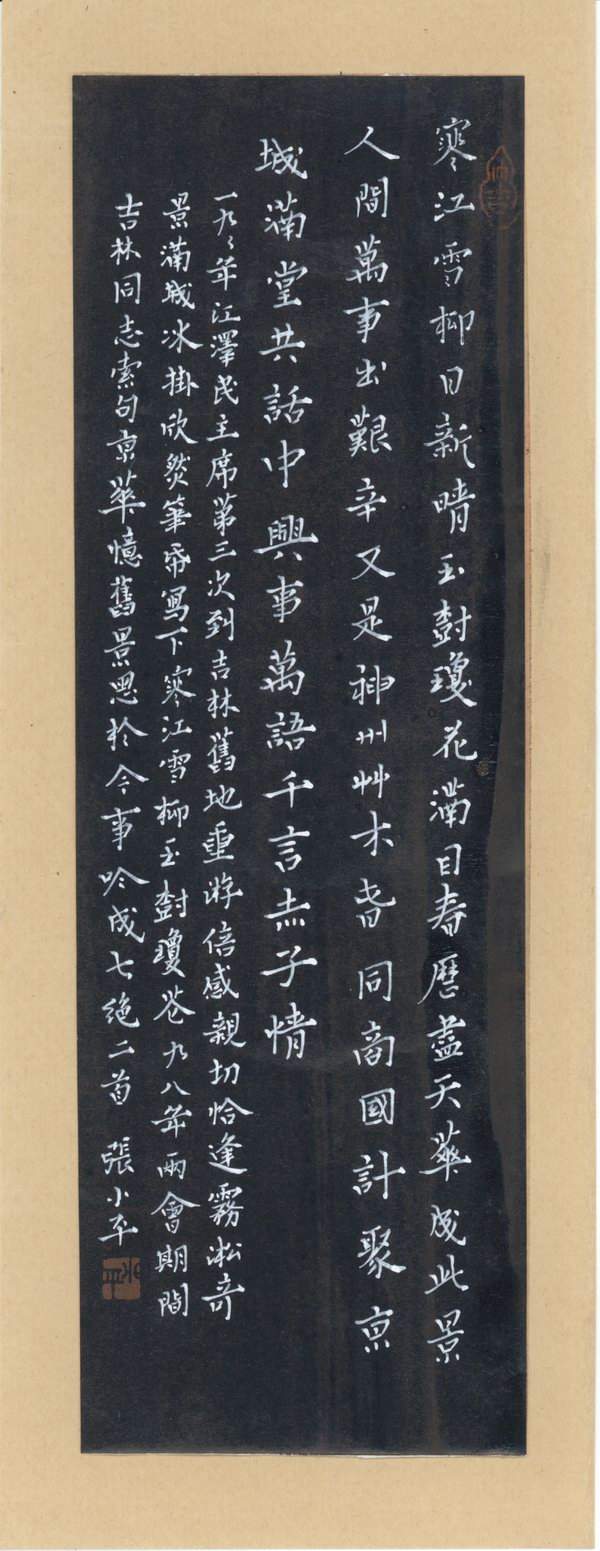 寒江雪柳日新晴玉樹瓊花滿目春歷盡天華成此景
人間萬事出艱辛又是神州艸木旾同商國計聚京
城滿堂共話中興事萬語千言赤子情
一九〻年江澤民主席第三次到吉林舊地重游倍感親切恰逢霧淞奇
景滿城冰掛欣然筆帋寫下寒江雪柳玉樹瓊花九八年兩會期間
吉林同志索句京華憶舊景思於今事吟成七絶二首 張小平